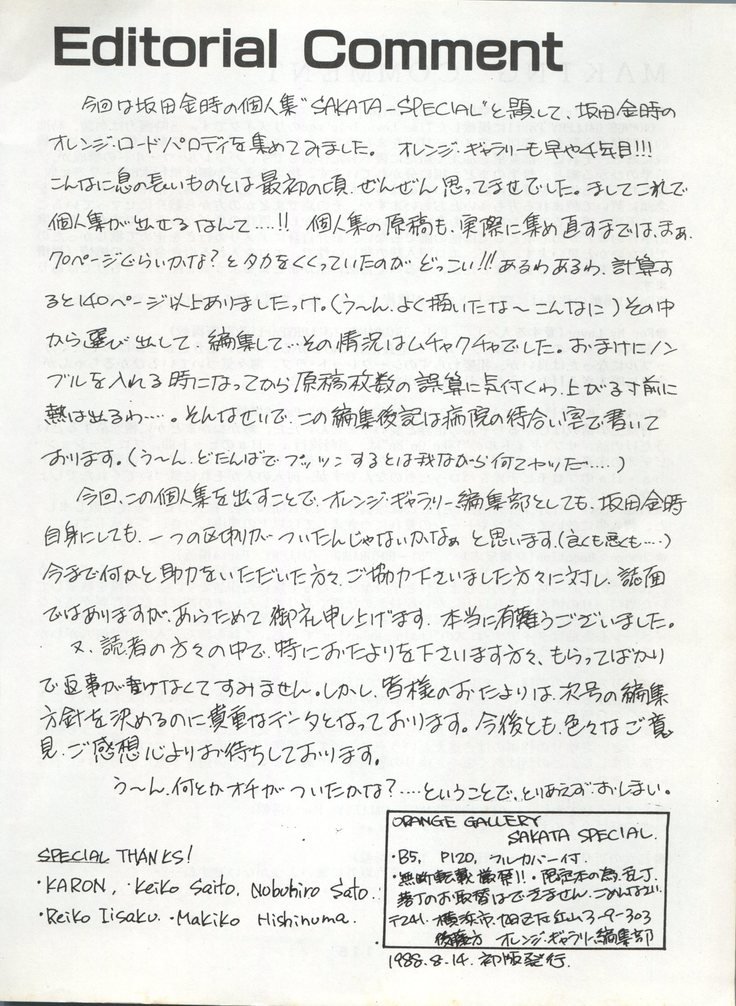 Editorial Comment
今回は坂田金時の個人集"SAKATA-SPECIAL"と題して、坂田金時の
オレンジ・ロードパロディを集めてみました。 オレンジ・ギャラリーも早や4年目!!!
こんなに息の長いものとは最初の頃、ぜんぜん思ってませでした。ましてこれで
個人集が出せるなんて‥‥!! 個人集の原稿も、実際に集め直すまでは、まぁ、
70ページぐらいかな?とタカをくくっていたのが どっこい!!!あるわあるわ、計算す
ると140ページ以上ありましたっけ。(う〜ん、よく描いたな〜こんなに)その中
から選び出して、編集して‥‥その情況はムチャクチャでした。おまけにノン
ブルを入れる時になってから原稿枚数の誤算に気付くわ、上がる寸前に
熱は出るわ‥‥。そんなせいで、この編集後記は病院の待合い室で書いて
おります。(う〜ん、どたんばでプッツンするとは我ながら何てヤツだ‥‥)
今回、この個人集を出すことで、オレンジ・ギャラリー編集部としても、坂田金時
自身にしても、一つの区切りがついたんじゃないかなぁ と思います、(良くも悪くも‥‥)
今まで何かと助力をいただいた方々、ご協力下さいました方々に対し、誌面
ではありますが、あらためて御礼申し上げます、本当に有難うございました。
又、読者の方々の中で、特におたよりを下さいます方々、もらってばかり
で返事が書けなくてすみません。しかし、皆様のおたよりは、次号の編集
方針を決めるのに貴重なデータとなっております。今後とも、色々なご意
見、ご感想心よりお待ちしております。
う〜ん、何とかオチがついたかな?‥‥ということで、とりあえず、おしまい。
SPECIAL THANKS!
・KARON, ・Keiko Saito, Nobuhiro Sato.
・Reiko Iisaku. ・Makiko Hishinuma.
ORANGE GALLERY
SAKATA SPECIAL.
・B5, P120, フルカバー付.
・無断転載厳禁!!・限定本の為、乱丁、
落丁のお取替はできません、ごめんなさい。
〒241. 横浜市旭区 3-9-303
後藤方 オレンジ・ギャラリー編集部
1988.8.14. 初版発行.